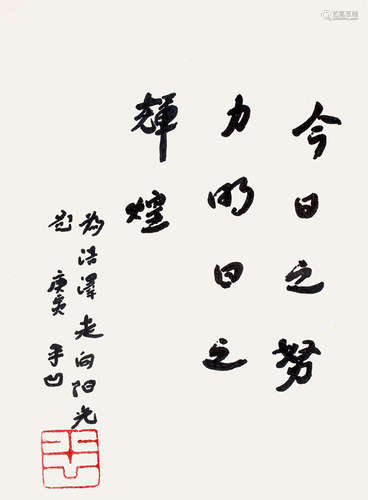 今日之努
力明日之
輝煌
为浩澤走向阳光
题 庚寅 平凹